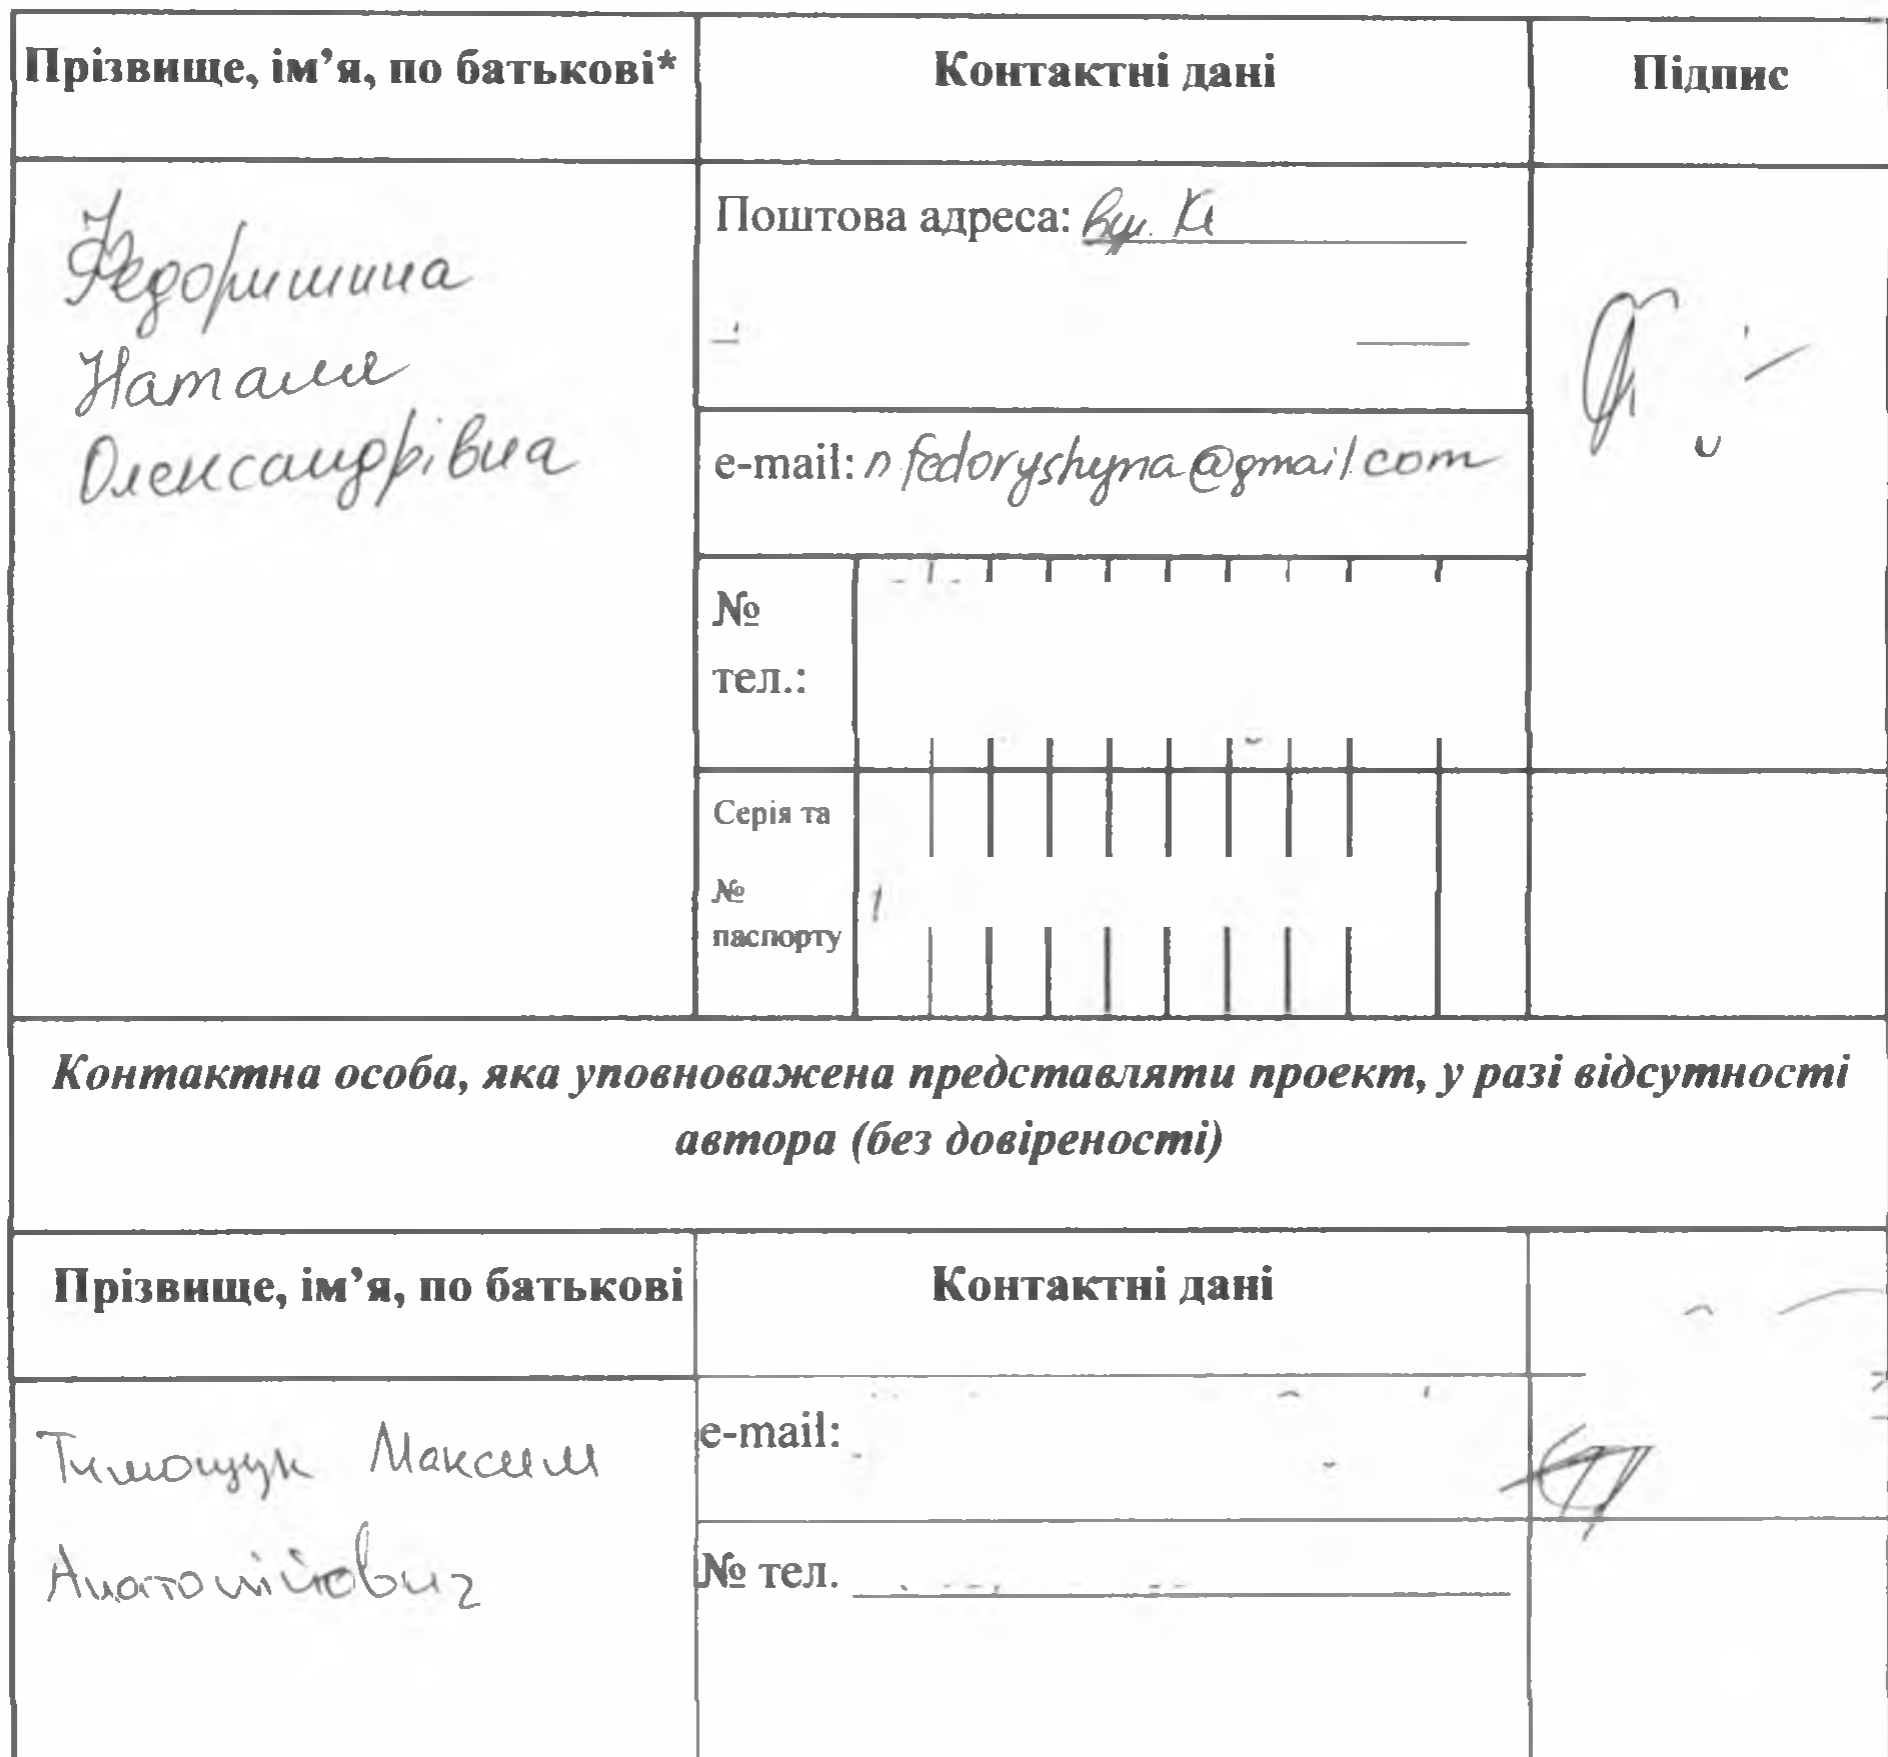 Прізвище, ім’я, по батькові*
Контактні дані
Підпис
Федоришина
Наталія
Олександрівна
Поштова адреса: вул. Кі
e-mail: n.fedoryshyna@gmail.com
№
тел.:
Серія та
№
паспорту
Контактна особа, яка уповноважена представляти проект, у разі відсутності
автора (без довіреності)
Прізвище, ім’я, по батькові
Контактні дані
Тимощук Максим
Анатолійович
e-mail:
№ тел.